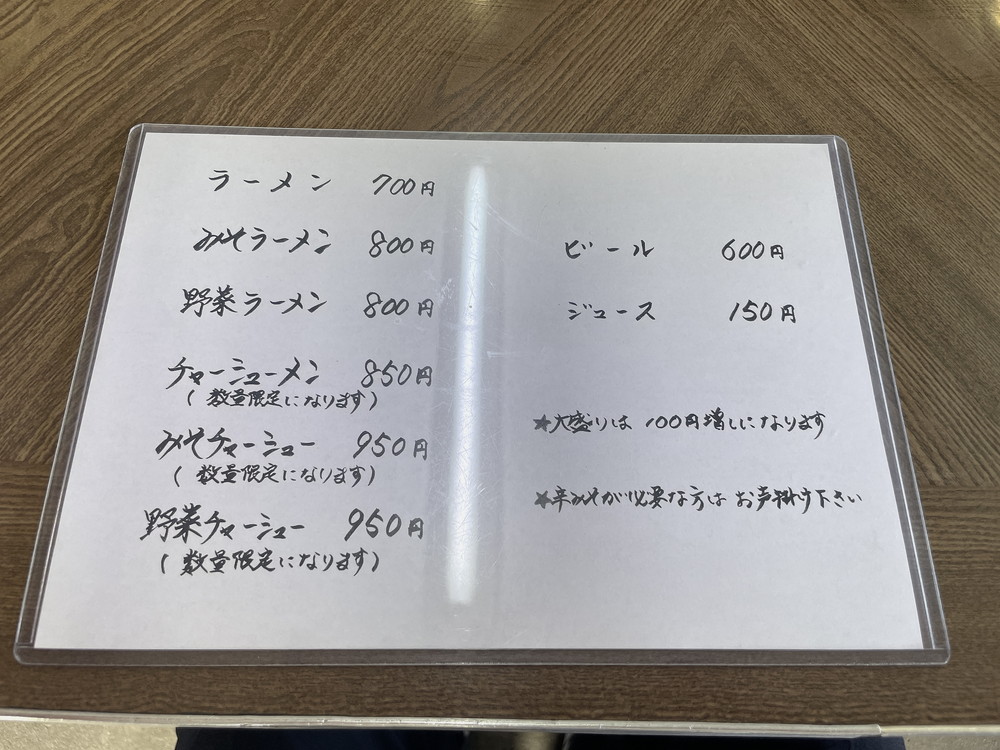 ラーメン 700円
みそラーメン 800円
野菜ラーメン 800円
チャーシューメン 850円
(数量限定になります)
みそチャーシュー 950円
(数量限定になります)
野菜チャーシュー 950円
(数量限定になります)
ビール 600円
ジュース 150円
★大盛りは 100円増しになります
★辛みそが必要な方は お声掛け下さい